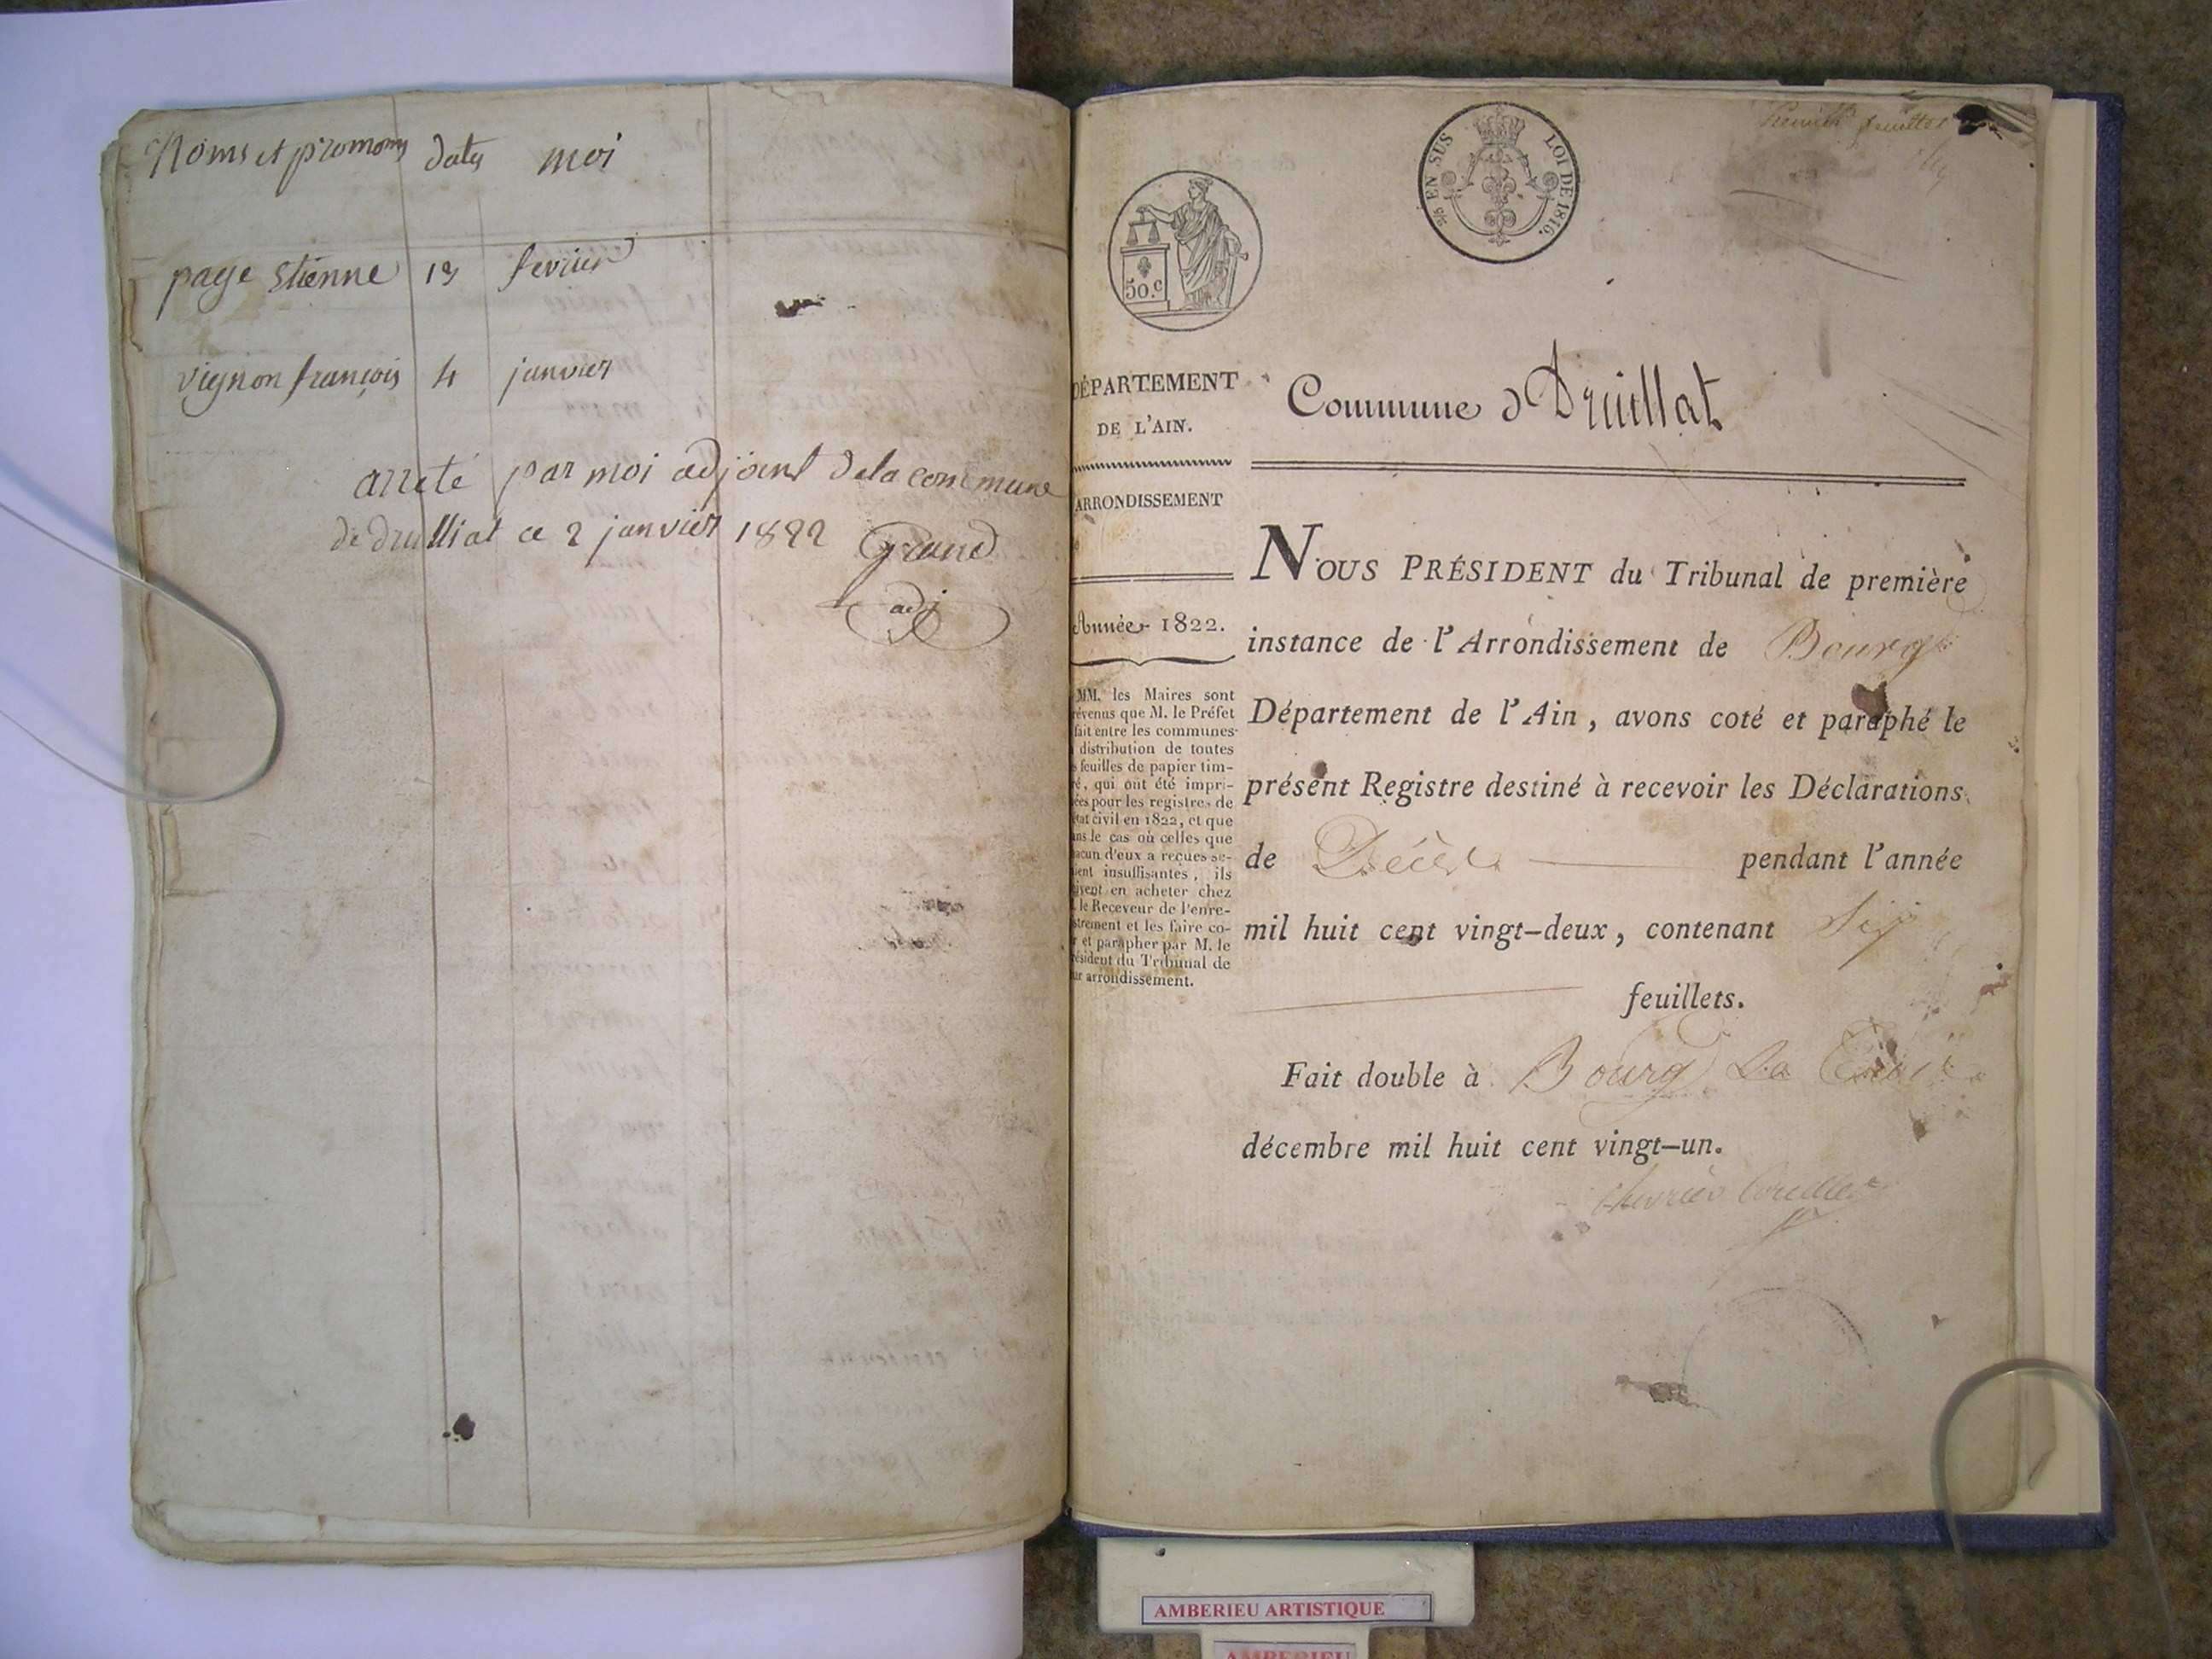 Noms et prenoms dates moi
page Etienne 13 fevrier
vignon françois 4 janvier
arreté par moi adjoint de la commune
de druilliat ce 2 janvier 1822 Grand
adj
EN SUS LOI DE 1816.
50.c
feuillet
DÉPARTEMENT
DE L'AIN.
ARRONDISSEMENT
Année 1822.
MM. les Maires sont
révenus que M. le Préfet
fait entre les communes
distribution de toutes
s feuilles de papier tim-
ré, qui ont été impri-
ées pour les registres de
tat civil en 1822, et que
ns le cas où celles que
acun d'eux a reçues se-
ient insuffisantes, ils
ivent en acheter chez
le Receveur de l'enre-
strement et les faire co-
r et parapher par M. le
résident du Tribunal de
ur arrondissement.
Commune d Druillat
NOUS PRÉSIDENT du Tribunal de première
instance de l'Arrondissement de Bourg
Département de l'Ain, avons coté et paraphé le
présent Registre destiné à recevoir les Déclarations
de Décès pendant l'année
mil huit cent vingt-deux, contenant Six
feuillets.
Fait double à Bourg Le
décembre mil huit cent vingt-un.
AMBERIEU ARTISTIQUE
AMBERIEU